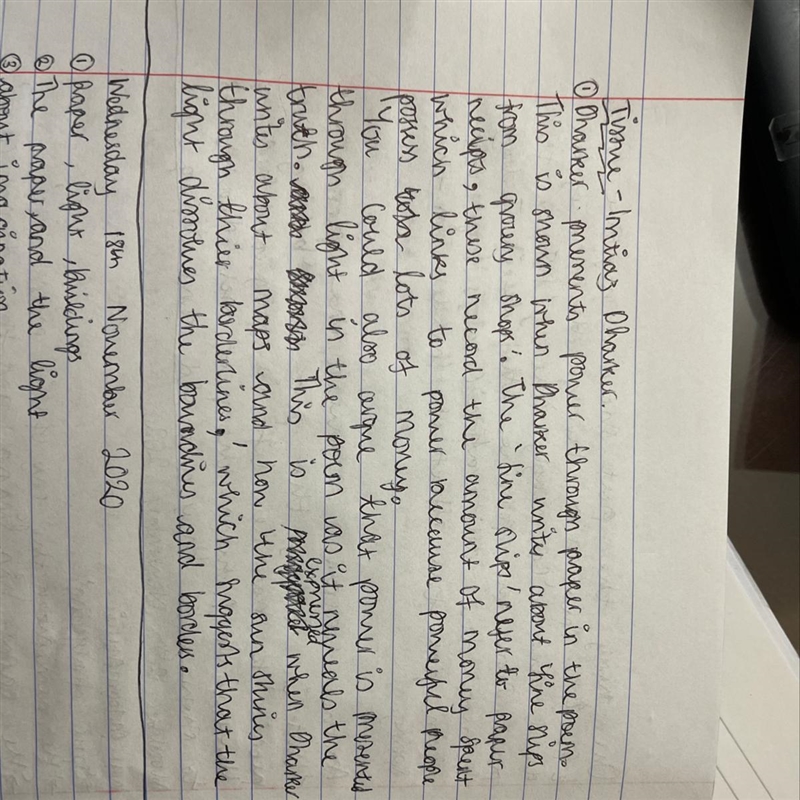 Tissue - Imtiaz Dharker.
① Dharker presents power through paper in the poem.
This is shown when Dharker writes about 'fine slips
from grocery shops'. The 'fine slips' refer to paper
recips, these record the amount of money spent
which links to power because powerful people
posess lots of money.
You could also argue that power is presented
through light in the poem as it reveals the
truth. This is expressed when Dharker
writes about maps and how 'the sun shines
through thier borderlines,' which suggests that the
light dissolves the boundries and borders.
Wednesday 18th November 2020
① Paper, light, buildings
② The paper, and the light
③ about imagination